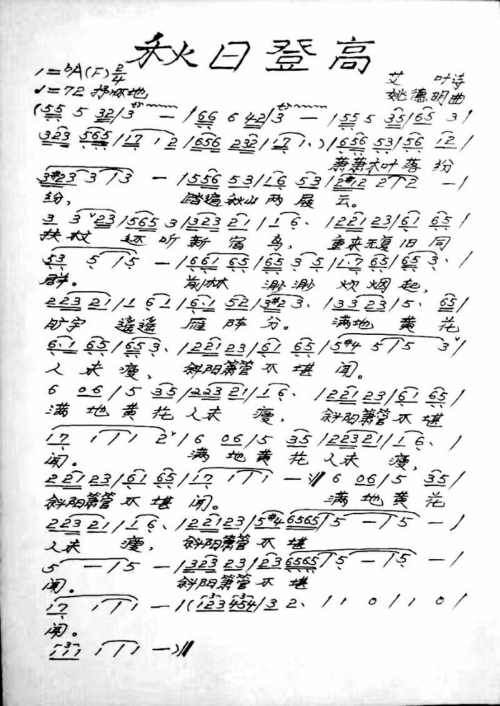 秋日登高
1=♭A(F) 2/4
艾 叶诗
♩=72 抒怀地
姚德明曲
(55 5 32/3 — /66 6 42/3 — /555 35/65 3/
323 565/17 12/656 232/17 1.)/656 53/56 12/
萧萧木叶落纷
3#23 3/3 — /5556 53/16 53/2#12 2/2 — /
纷, 踏遍秋山两屐云。
3 3ˇ23/565 3/323 21/1 6. /2221 23/61 65/
扶杖 还听新宿鸟, 重来无复旧同
53 5/5 — /661 65/65 35/1.7 65/65 3./
群。 林 渺渺 炊烟起,
2223 21/1 61/6.1 52/3#23./33 23/5. 65/
旷宇 遥遥 雁阵分。 满地 黄花
6.1 65/65 3./2221 23/61 65/5#4 5/5 3ˇ/
人未瘦, 斜阳箫管不堪闻。
6 06/5 35/2223 21/16. /2221 23/61 65/
满地黄花人未 瘦, 斜阳箫管不堪
17 1/1 2ˇ/6 06/5 35/2223 21/16. /
闻。 满地黄花人未瘦,
2221 23/61 65/17 1/1 —:‖ 6 06/5 35/
斜阳箫管不堪闻。 满地黄花
2223 21/16. /2221 23/5#4 6565/5 — /5 — /
人未 瘦, 斜阳箫管不堪
5 — /5 — /323 23/23 6565/5 — /5 — /
闻。 斜阳箫管不堪
17 1/1 — /(123 454/3 2. /1 10/10/
闻。
111 1/1 —)‖